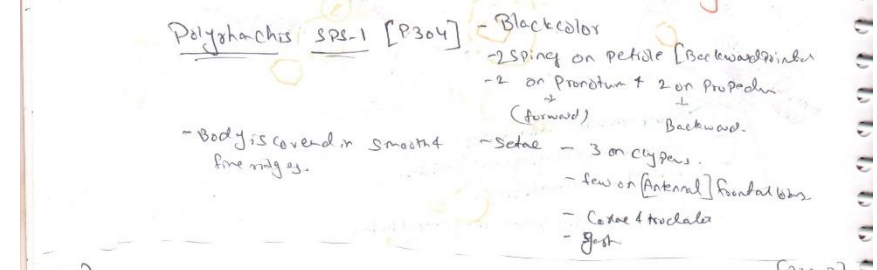 Polyrhachis SPS-1 [P304] - Black color
- 2 spines on petiole [Backward pointed
- 2 on Pronotum & 2 on Propodeum
(forward) Backward.
- Body is covered in smooth & - Setae - 3 on clypeus.
fine ridges. - few on [Antennal] frontal lobes
- Coxae & trochanter